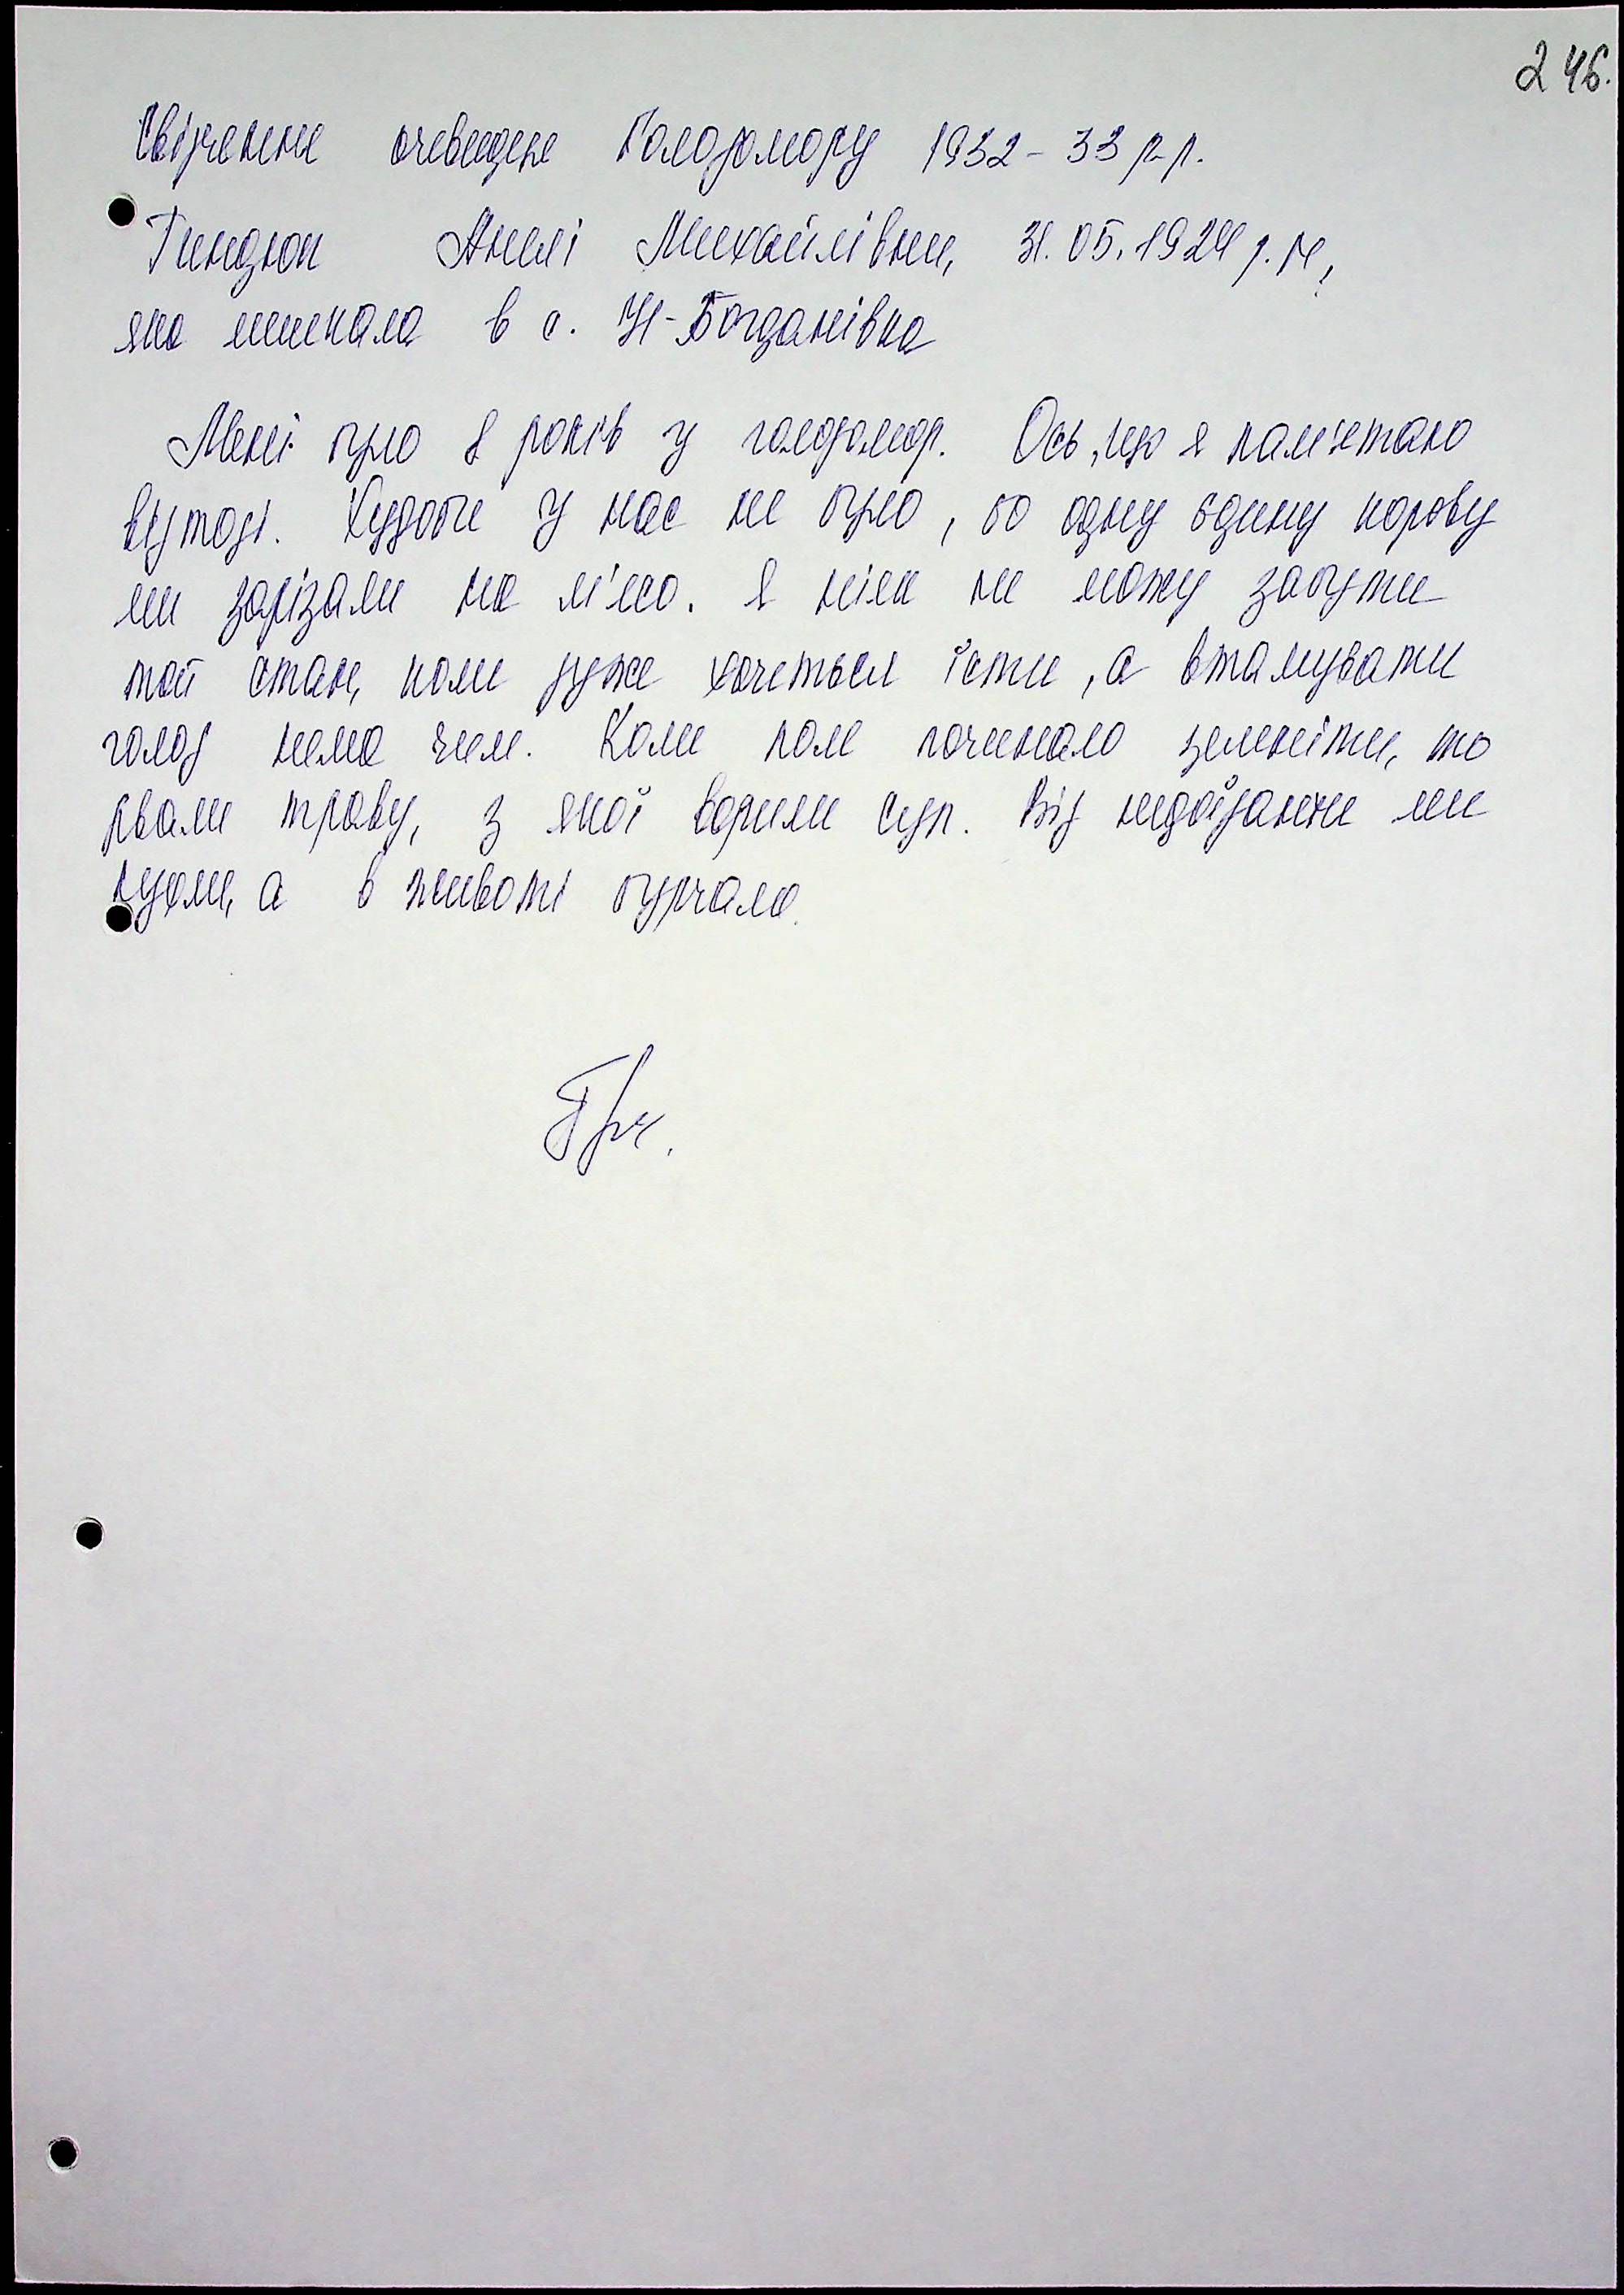 246.
Свідчення очевидця Голодомору 1932-33 р.р.
Гиндюк Анелі Михайлівни, 31.05.1924 р.н,
яка мешкала в с. Н-Богданівка
Мені було 8 років у голодомор. Ось, що я пам'ятаю
відтоді. Худоби у нас не було, бо одну єдину корову
ми зарізали на м'ясо. Я ніяк не можу забути
той стан, коли дуже хочеться їсти, а втамувати
голод нема чим. Коли поле починало зеленіти, то
рвали траву, з якої варили суп. Від недоїдання ми
пухли, а в животі бурчало.